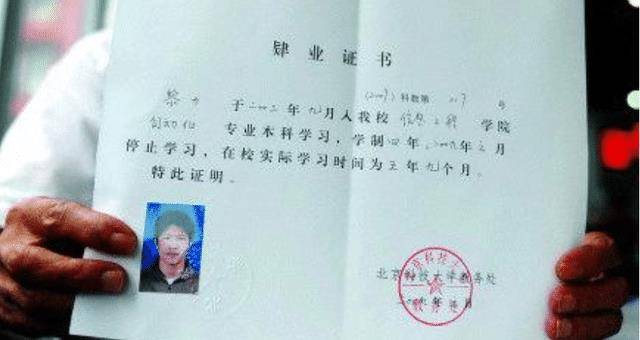 肄业证书
(2009)科教第 217 号
黎力 于二〇〇二年九月入我校 信息工程 学院
自动化 专业本科学习,学制四年2009年三月
停止学习,在校实际学习时间为五年九个月。
特此证明。
北京科技大学教务处
二〇〇九年 月